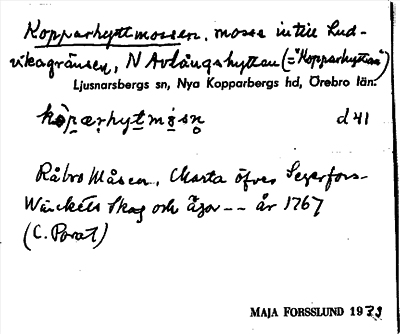 Kopparhyttmossen, mosse intill Lud-
vikagränsen, N Avlångshyttan (="Kopparhyttan")
Ljusnarsbergs sn, Nya Kopparbergs hd, Örebro län.
d 41
Råbro Måsen, Charta öfver Segerfors-
Wärckets skog och ägor -- år 1767
(C. Porat)
MAJA FORSSLUND 1933